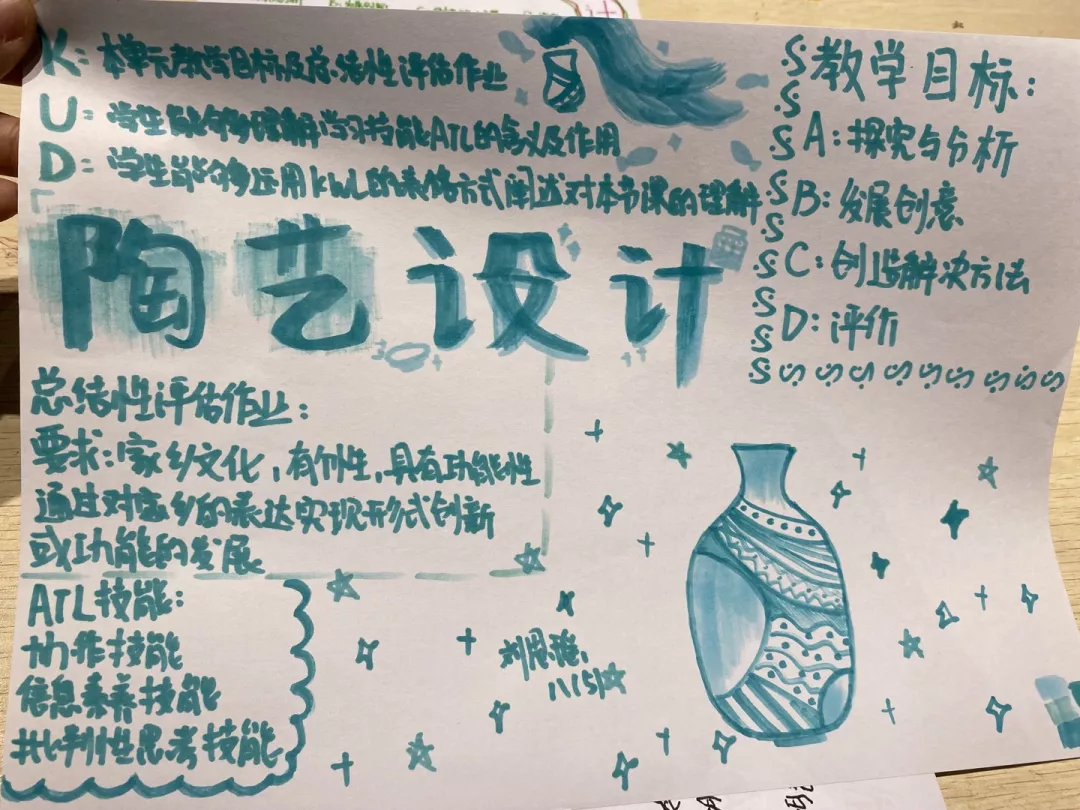 K: 本单元教学目标及总结性评估作业
U: 学生能够理解学习技能ATL的点以及作用
D: 学生能够运用KWL的表格方式阐述对本节课的理解
陶艺设计
教学目标:
A: 探究与分析
B: 发展创意
C: 创造解决方法
D: 评价
总结性评估作业:
要求:家乡文化,有个性,具有功能性
通过对家乡的表达实现形式创新
或功能的发展
ATL技能:
协作技能
信息素养技能
批判性思考技能